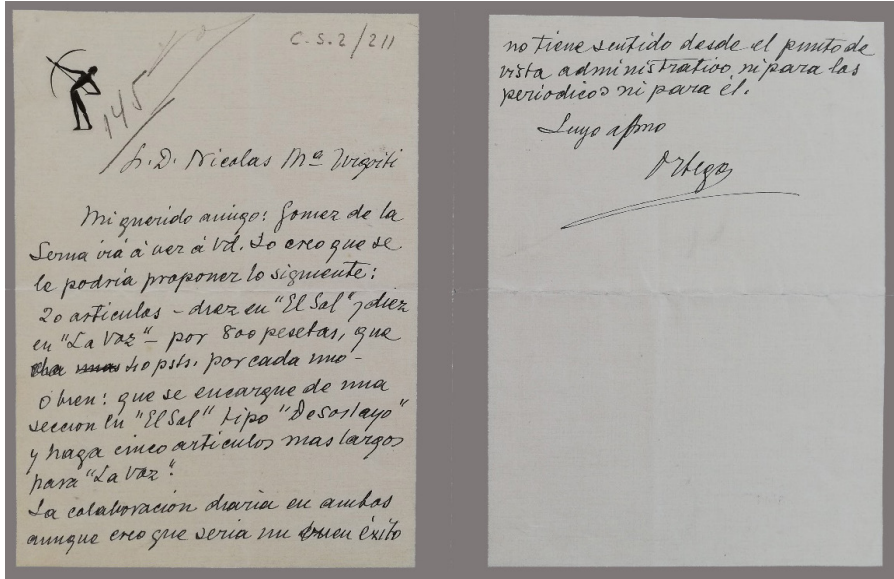 C.S.2/211
145
Sr. D. Nicolas Mª Urgoiti
Mi querido amigo: Gomez de la
Serna irá á ver á Vd. Yo creo que se
le podría proponer lo siguiente:
20 articulos - diez en "El Sol" y diez
en "La Voz" - por 800 pesetas, que
40 psts. por cada uno -
ó bien: que se encargue de una
seccion en "El Sol" tipo "De Soslayo"
y haga cinco articulos mas largos
para "La Voz".
La colaboración diaria en ambos
aunque creo que seria un buen éxito
no tiene sentido desde el punto de
vista administrativo, ni para los
periodicos ni para él.
Suyo afmo
Ortega